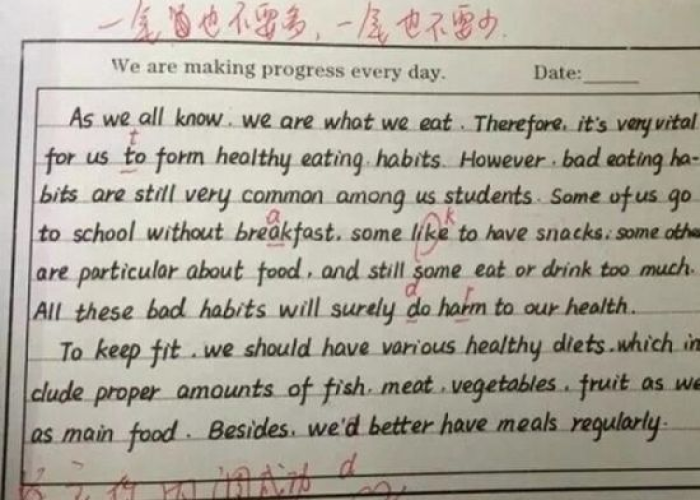 一尾也不要多,一尾也不要少.
We are making progress every day. Date:
As we all know, we are what we eat. Therefore, it's very vital
t
for us to form healthy eating habits. However, bad eating ha-
bits are still very common among us students. Some of us go
a k
to school without breakfast, some like to have snacks; some othe
are particular about food, and still some eat or drink too much.
d r
All these bad habits will surely do harm to our health.
To keep fit, we should have various healthy diets, which in
clude proper amounts of fish, meat, vegetables, fruit as we
as main food. Besides, we'd better have meals regularly.
d